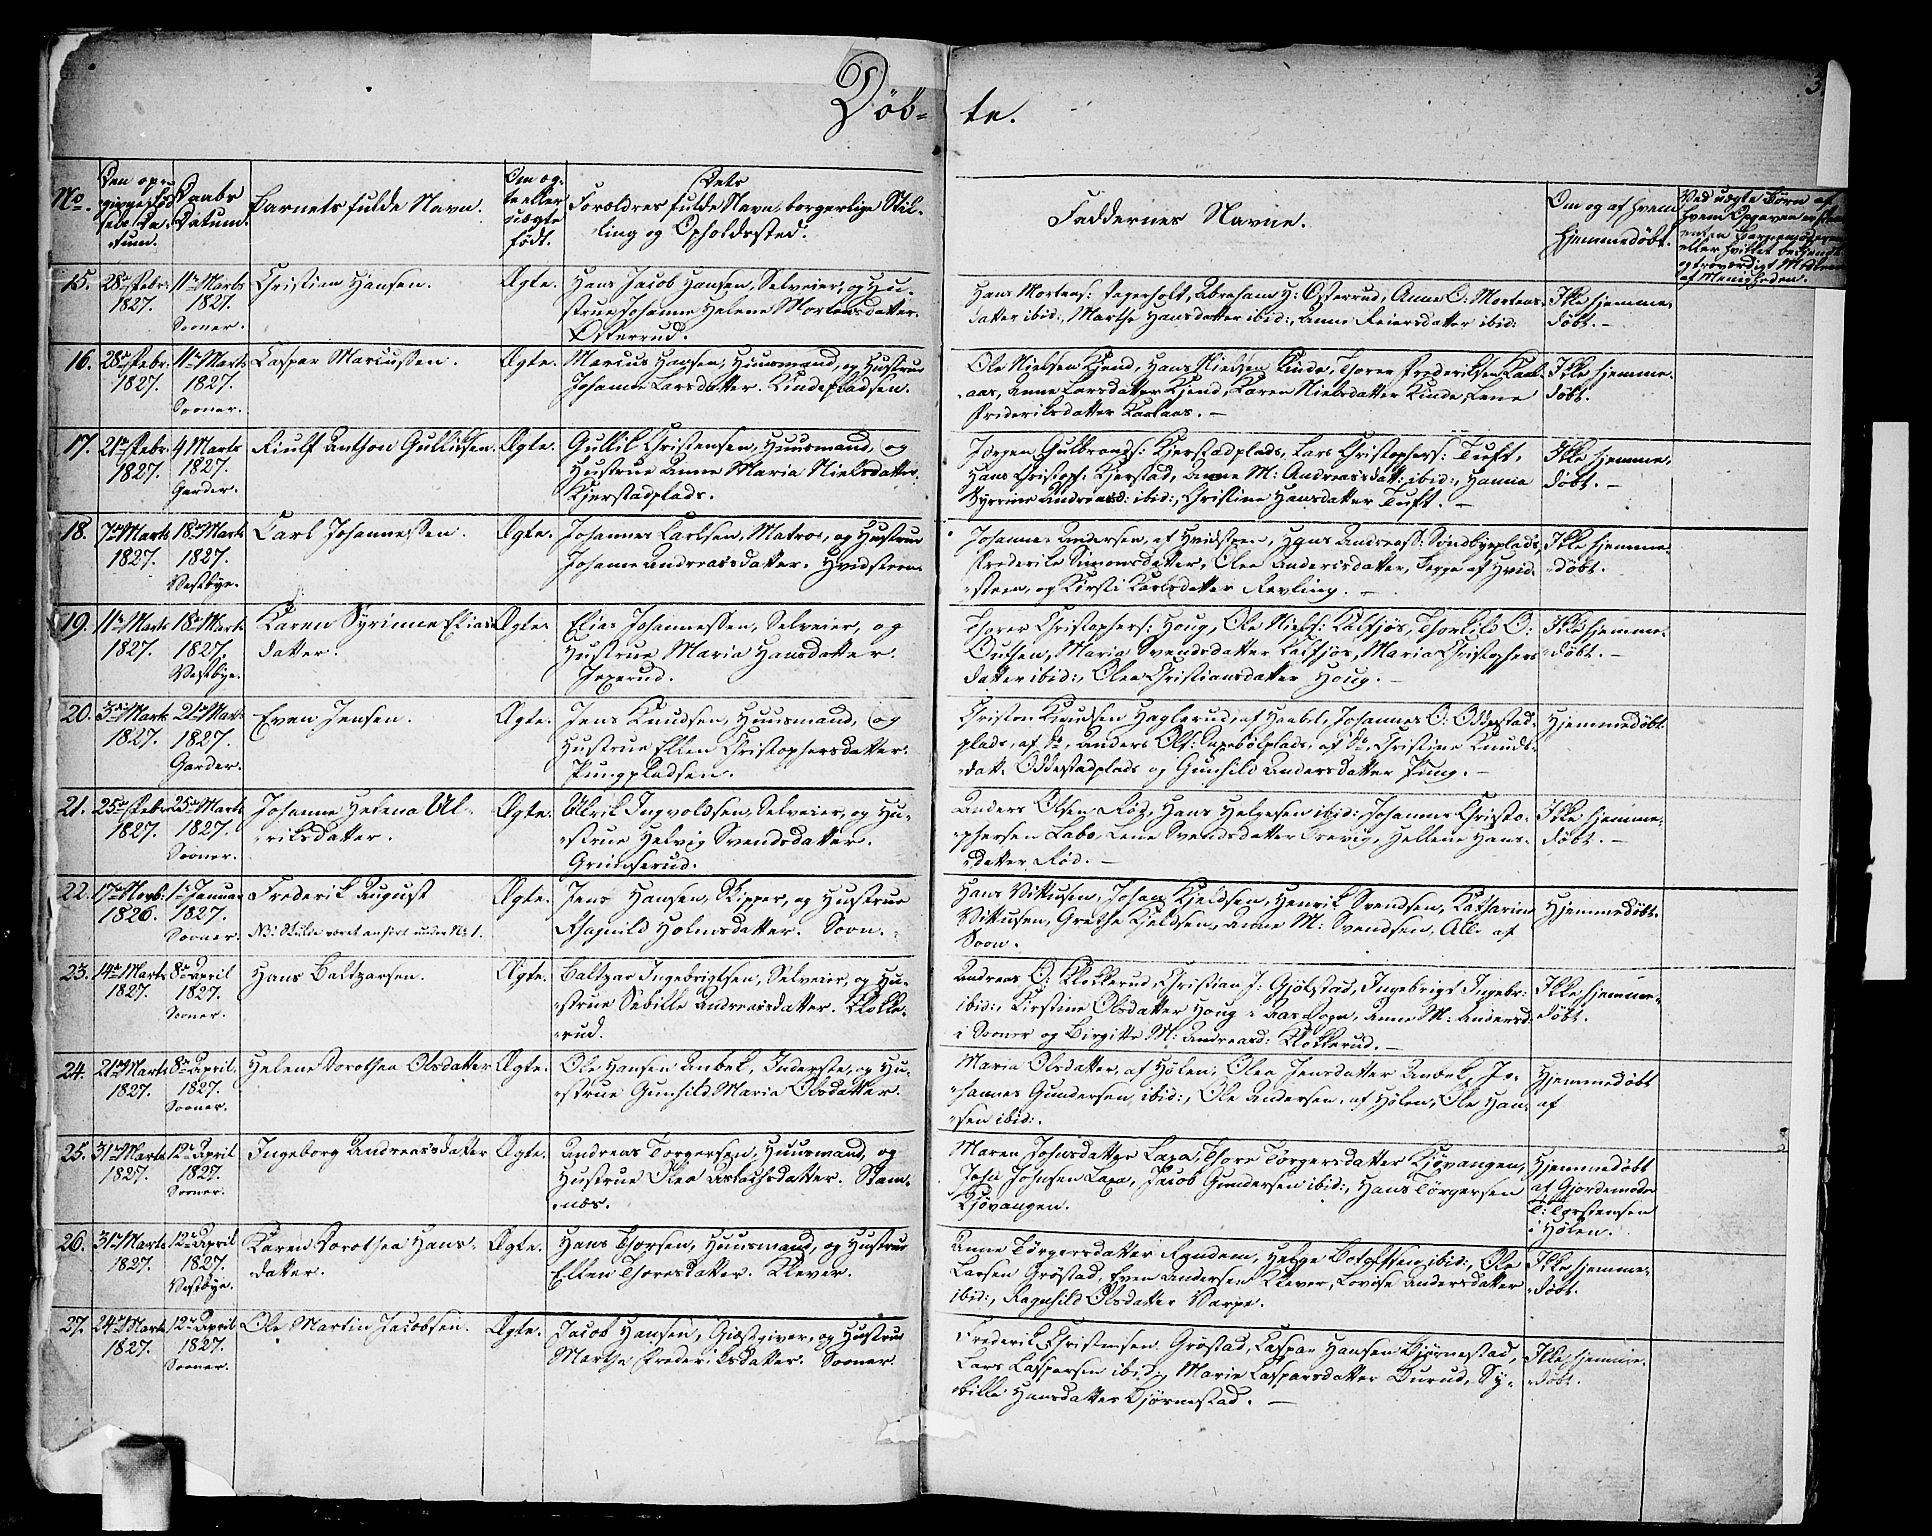 Døb-
te.
3.
No.
Den opgivne Fødselsdatum.
Daabs Datum.
Barnets fulde Navn.
Om ægte eller uægte født.
Dets Forældres fulde Navn, borgerlige Stilling og Opholdssted.
Faddernes Navne.
Om og af hvem Hjemmedøbt.
15. 28de Febr. 1827. 11te Marts 1827. Sooner. Christian Hansen. Ægte. Hans Jacob Hansen, Selveier, og Hu-
strue Johanne Helene Mortensdatter.
Østerrud.
Hans Mortens: Fagerholt, Abraham H: Østerrud, Anne O: Mortens-
datter ibid:, Marthe Hansdatter ibid:, Anne Reiersdatter ibid:
Ikke hjemme-
døbt. —
16. 28de Febr. 1827. 11te Marts 1827. Sooner. Caspar Marcussen. Ægte. Marcus Hansen, Huusmand, og Hustrue
Johanne Larsdatter. Kindepladsen.
Ole Nielsen Kjend, Hans Nielsen Kinde, Thoren Frederiksen Kaal-
aas, Anne Larsdatter Kjend, Karen Nielsdatter Kinde, Lene
Frederiksdatter Kaalaas. —
Ikke hjemme-
døbt.
17. 21de Febr. 1827. 4 Marts 1827. Garder. Anthon Gulliksen. Ægte. Gullik Christensen, Huusmand, og
Hustrue Anne Maria Nielsdatter.
Kjerstadplads.
Jørgen Gulbrands: Kjerstadplads, Lars Christophers: Tuft,
Hans Christoph: Kjerstad, Anne M: Andreasdatt: ibid:, Hanna
Syrine Andreasd: ibid:, Christine Hansdatter Tuft. —
Ikke hjemme-
døbt. —
18. 7de Marts 1827. 18de Marts 1827. Vestbye. Carl Johannessen. Ægte. Johannes Carlsen, Matros, og Hustrue
Johanne Andreasdatter. Hvidsteen.
Johannes Andersen, af Hvidsteen, Hans Andreass: Sundbyeplads,
Frederike Simonsdatter, Olea Andersdatter, begge af Hvid-
steen, og Kirsti Karlsdatter Revling. —
Ikke hjemme-
døbt.
19. 11te Marts 1827. 18de Marts 1827. Vestbye. Karen Syrinne Elias-
datter. Ægte. Elias Johannessen, Selveier, og
Hustrue Maria Hansdatter
Gexerud.
Thorer Christophers: Houg, Ole Niels: Kalfjøs, Thorkild O:
Outsen, Maria Svendsdatter Kalfjøs, Maria Christophers-
datter ibid:, Olea Christiansdatter Houg. —
Ikke hjemme-
døbt. —
20. 3die Marts 1827. 21de Marts 1827. Garder. Even Jensen. Ægte. Jens Knudsen, Huusmand, og
Hustrue Ellen Christophersdatter.
Pungpladsen.
Christen Knudsen Haglerud, af Haabøl, Johannes O: Oddestad-
plads, af do, Anders Ols: plads, af do, Christine Knuds-
datt: Oddestadplads og Gunhild Andersdatter Pung. —
Hjemmedøbt.
21. 25de Febr. 1827. 25de Marts 1827. Sooner. Johanne Helena Ul-
riksdatter. Ægte. Ulrik Ingvoldsen, Selveier, og Hu-
strue Helvig Svendsdatter.
Grimserud.
Anders Olsen Rød, Hans Helgesen ibid:, Johannes Christo-
phersen Labo, Lene Svendsdatter Krevig, Hellene Hans-
datter Rød. —
Ikke hjemme-
døbt. —
22. 17de Novb: 1826. 1te Januar 1827. Sooner. Frederik August
NB: Skulde været anført under No 1.
Ægte. Jens Hansen, Skipper, og Hustrue
Ragnild Holmsdatter. Soon.
Hans Vittusen, Johan Kjeldsen, Henrik Svendsen, Katharina
Vittusen, Grethe Kjeldsen, Anne M: Svendsen, Alle af
Soon.
Hjemmedøbt.
23. 14de Marts 1827. 8de April 1827. Sooner. Hans Baltzarsen. Ægte. Baltzar Ingebrigtsen, Selveier, og Hu-
strue Sebille Andreasdatter. Klokke-
rud.
Andreas O: Klokkerud, Christian J: Gjølstad, Ingebrigt Ingebr:
ibid:, Kirstine Olsdatter Houg i Aas Sogn, Anne M: Andersd:
i Sooner og Birgitte M: Andreasd: Klokkerud. —
Ikke hjemme-
døbt.
24. 21de Marts 1827. 8de April 1827. Sooner. Helene Dorothea Olsdatter Ægte. Ole Hansen Anbek, Inderste, og Hu-
strue Gunhild Maria Olsdatter.
Maria Olsdatter, af Hølen, Olea Jensdatter Anbek, Jo-
hannes Gundersen ibid:, Ole Andersen, af Hølen, Ole Han-
sen ibid:.
Hjemmedøbt
af
25. 31te Marts 1827. 12te April 1827. Sooner. Ingeborg Andreasdatter Ægte. Andreas Torgersen, Huusmand, og
Hustrue Olea Aslachsdatter. Stam-
næs.
Maren Johnsdatter Laxa, Thore Torgersdatter Kjøvangen,
John Johnsen Laxa, Jacob Gundersen ibid:, Hans Torgersen
Kjøvangen.
Hjemmedøbt
af Gjordemoder
T: Torstensen
i Hølen.
26. 31te Marts 1827. 12te April 1827. Vestbye. Karen Dorothea Hans-
datter. Ægte. Hans Thorsen, Huusmand, og Hustrue
Ellen Thoresdatter. Klever.
Anne Torgersdatter Randem, Helge Botolfsen ibid:, Ole
Larsen Grøstad, Even Andersen Klever, Lovise Andersdatter
ibid:, Ragnhild Olsdatter Berge.
Ikke hjemme-
døbt.
27. 24de Marts 1827. 12te April 1827. Sooner. Ole Martin Jacobsen. Ægte. Jacob Hansen, Giæstgiver, og Hustrue
Marthe Frederiksdatter. Sooner.
Frederik Christensen Grøstad, Caspar Hansen Bjørnestad,
Lars Caspersen ibid:, Marie Caspersdatter Durud, Sy-
bille Hansdatter Bjørnestad. —
Ikke hjemme-
døbt.